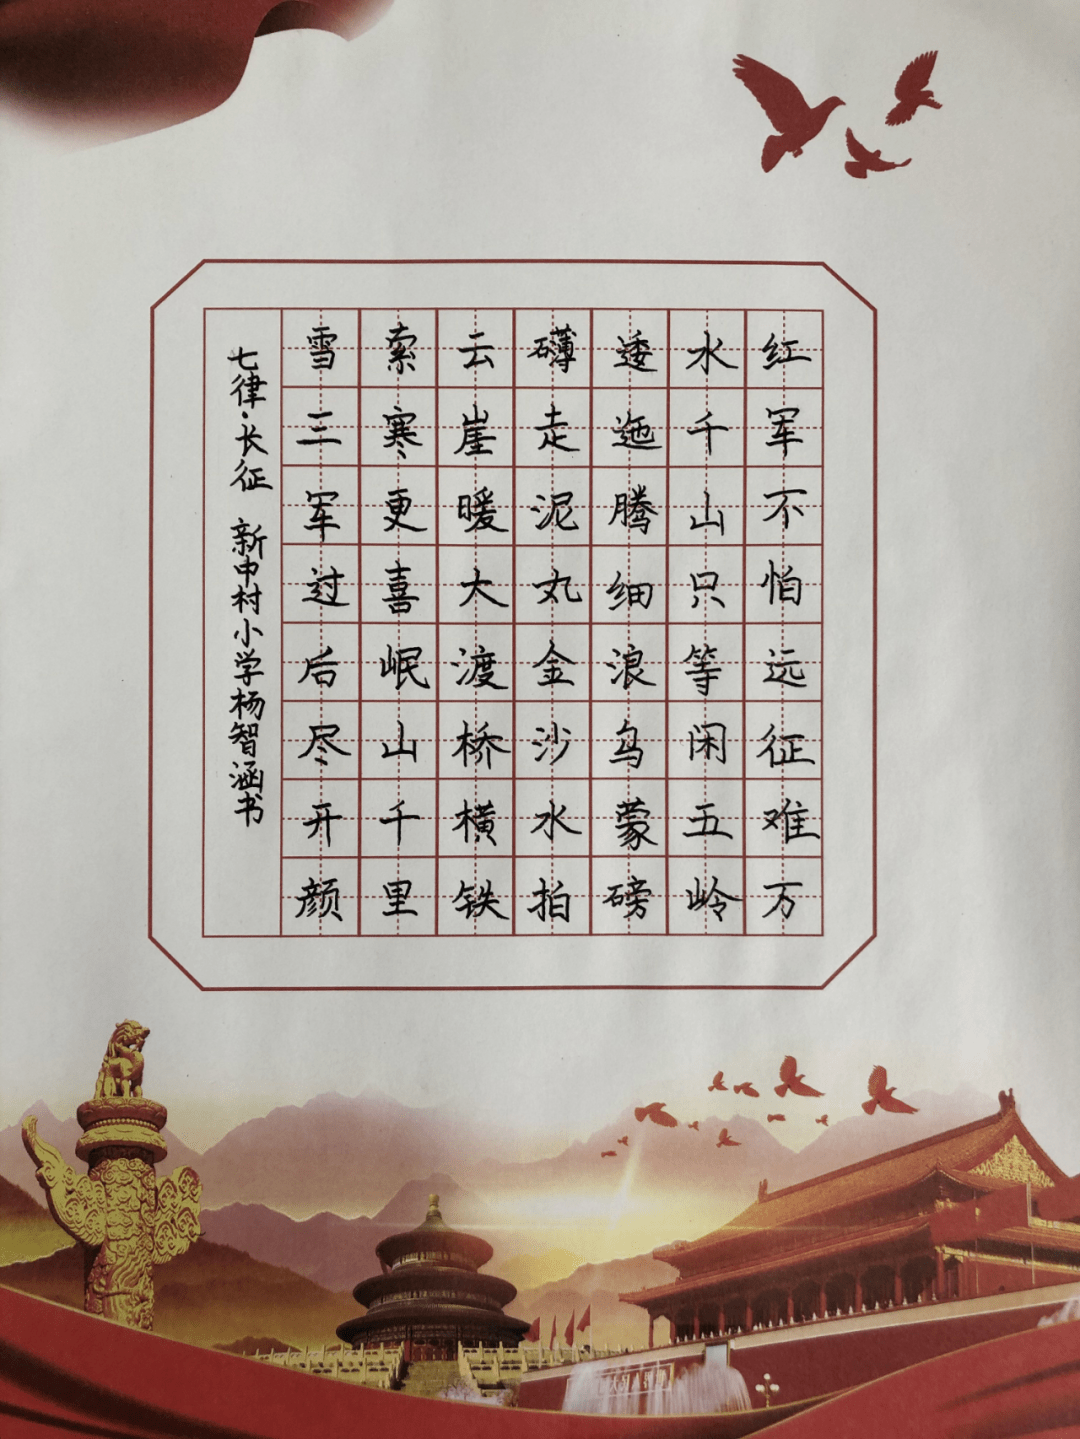 红军不怕远征难万
水千山只等闲五岭
逶迤腾细浪乌蒙磅
礴走泥丸金沙水拍
云崖暖大渡桥横铁
索寒更喜岷山千里
雪三军过后尽开颜
七律·长征 新中村小学杨智涵书